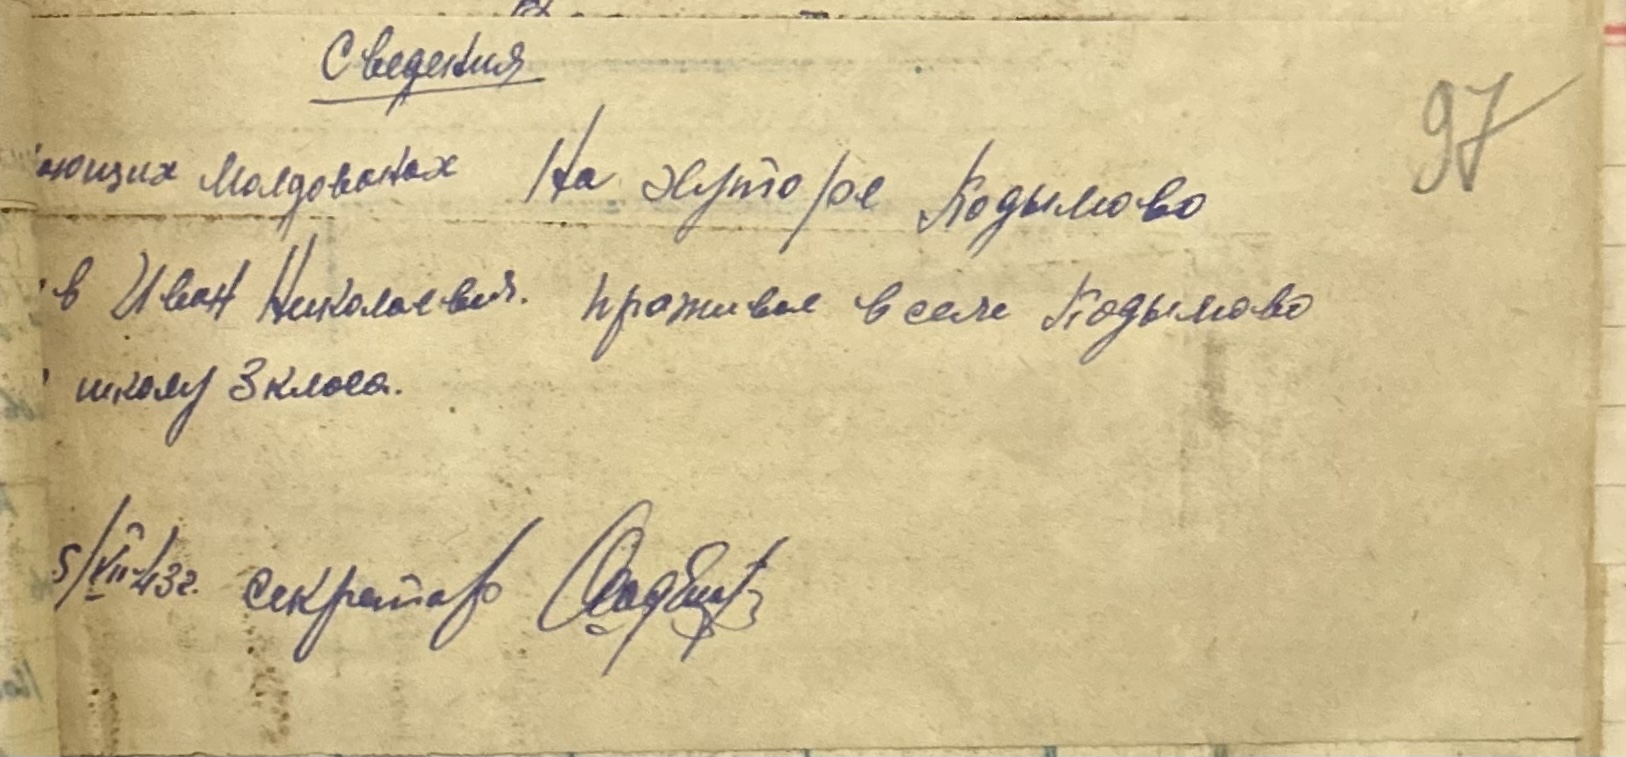 Сведения
97
ающих Молдованах На хуторе Кодымово
в Иван Николаевич. проживае в селе Кодымово
школу 3 класа.
5/VII-43г. секретар